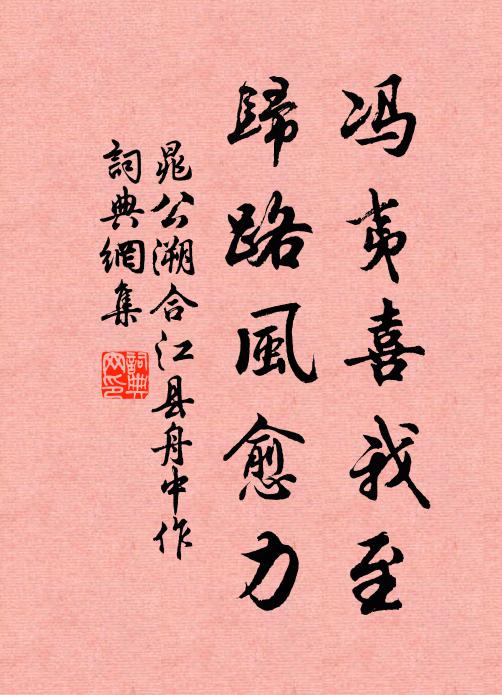 冯夷喜我至
歸路風愈力
晁公溯合江县舟中作
詞典網集
詞典
网印